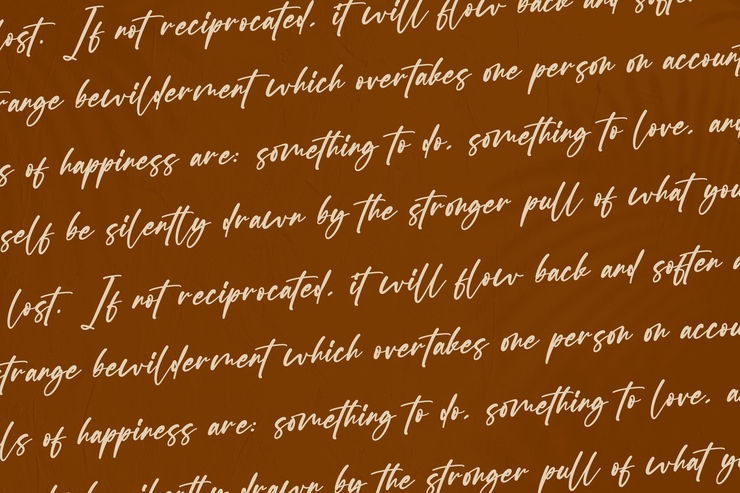 lost. If not reciprocated, it will flow back and soften
range bewilderment which overtakes one person on account
s of happiness are: something to do, something to love, and
self be silently drawn by the stronger pull of what you
lost. If not reciprocated, it will flow back and soften a
trange bewilderment which overtakes one person on accou
ls of happiness are: something to do, something to love, a
silently drawn by the stronger pull of what yo